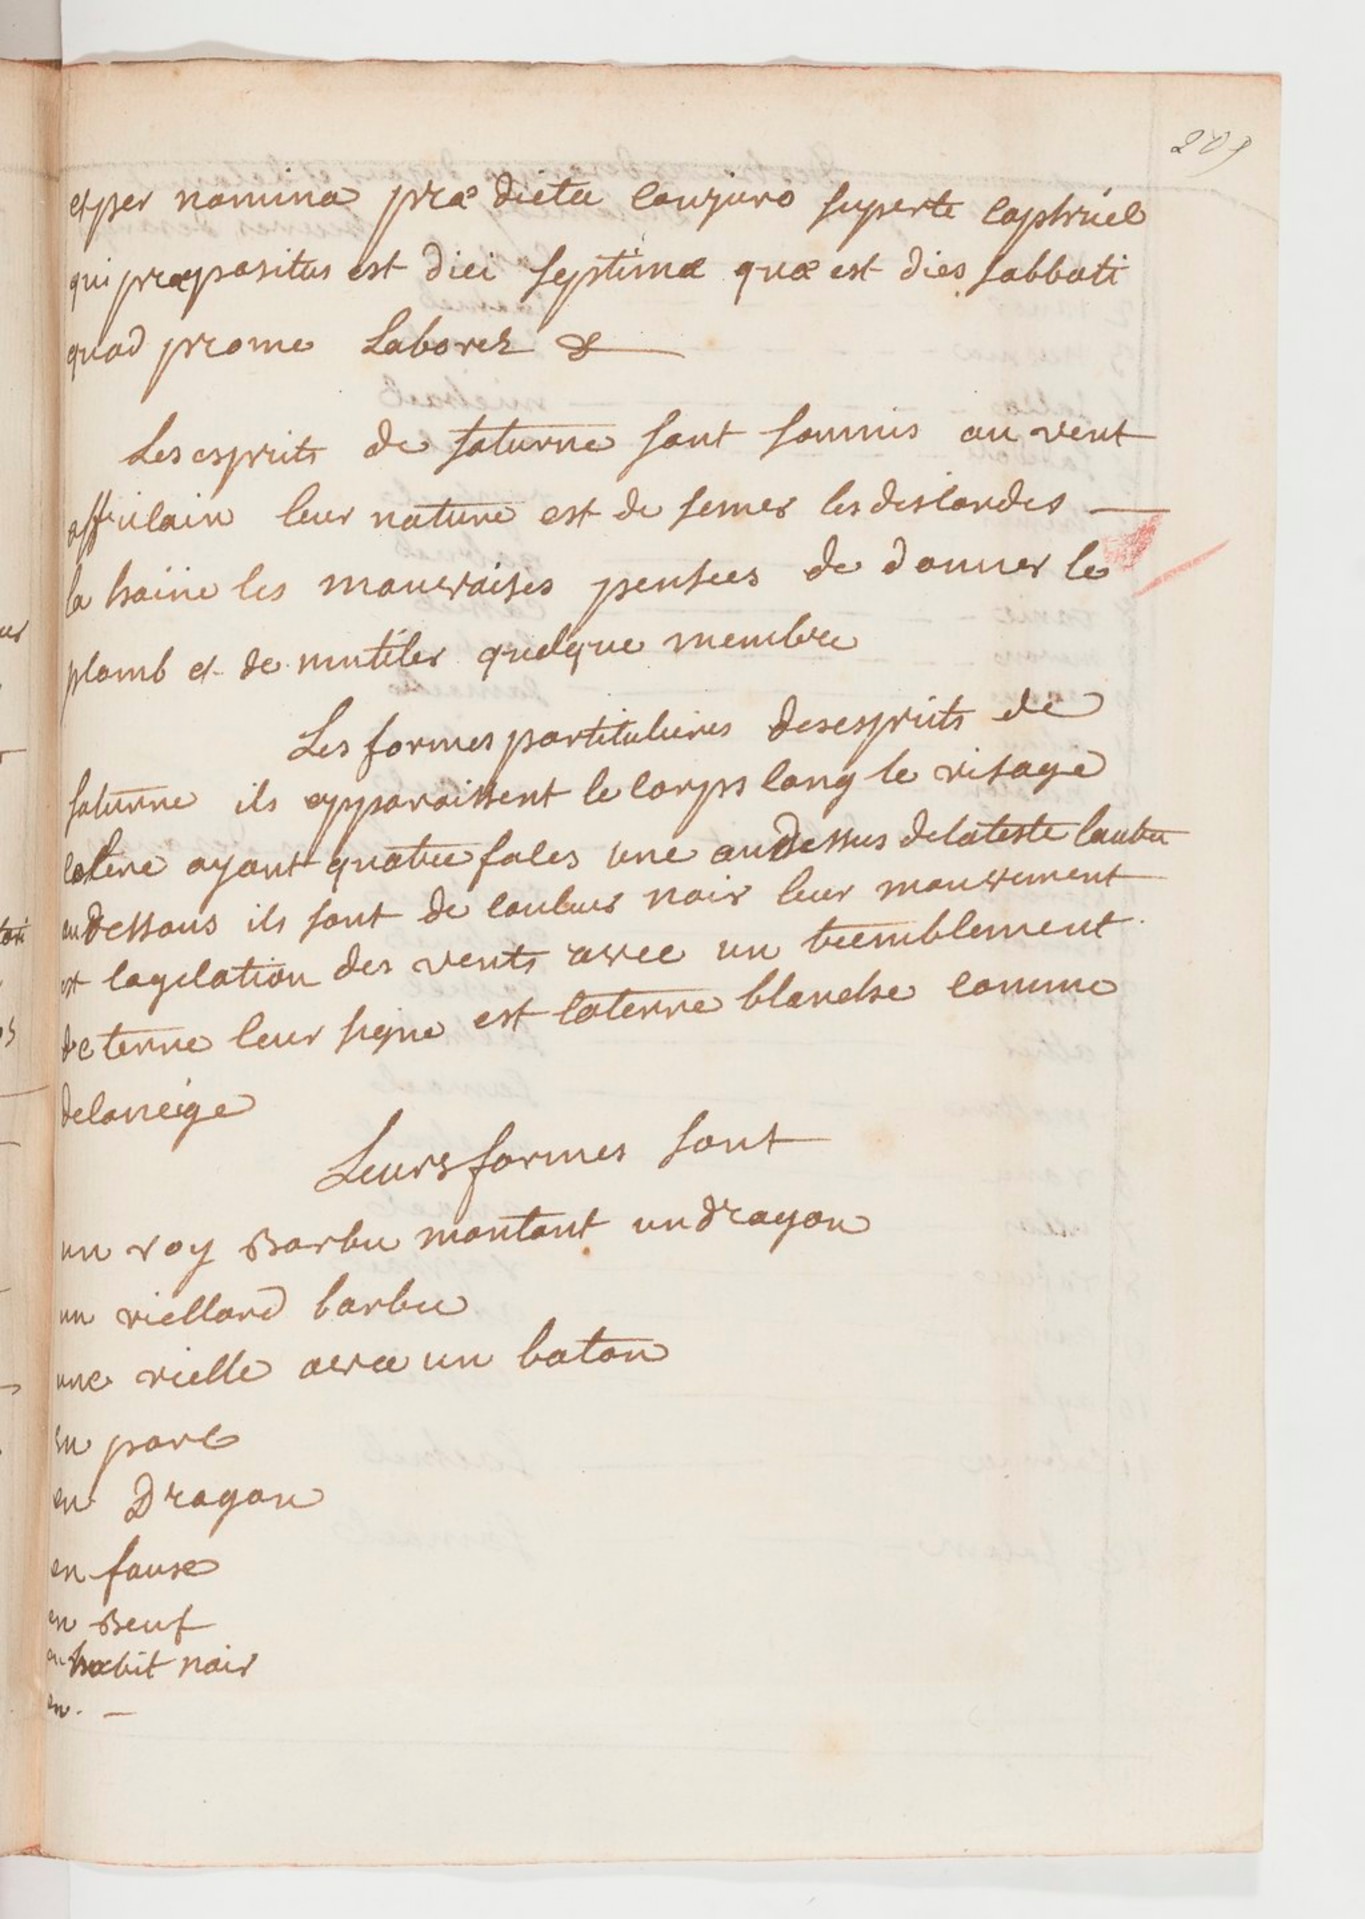 209
et per nomina præ dicta conjuro super te caphriel
qui præpositus est diei septimæ quæ est dies sabbati
quod pro me Labores &
Les esprits de saturne sont soumis au vent
affricain leur nature est de semer les discordes
la haine les mauvaises pensees de donner le
plomb et de mutiler quelque membre
Les formes particulieres des esprits de
saturne ils apparaissent le corps long le visage
colere ayant quatre faces une au dessus de la teste lautre
au dessous ils sont de couleur noir leur mouvement
est lagitation des vents avec un tremblement
de terre leur signe est la terre blanche comme
de la neige
Leurs formes sont
un roy Barbu montant un dragon
un viellard barbu
une vielle avec un baton
en porc
en Dragon
en fause
en Beuf
habit noir
en